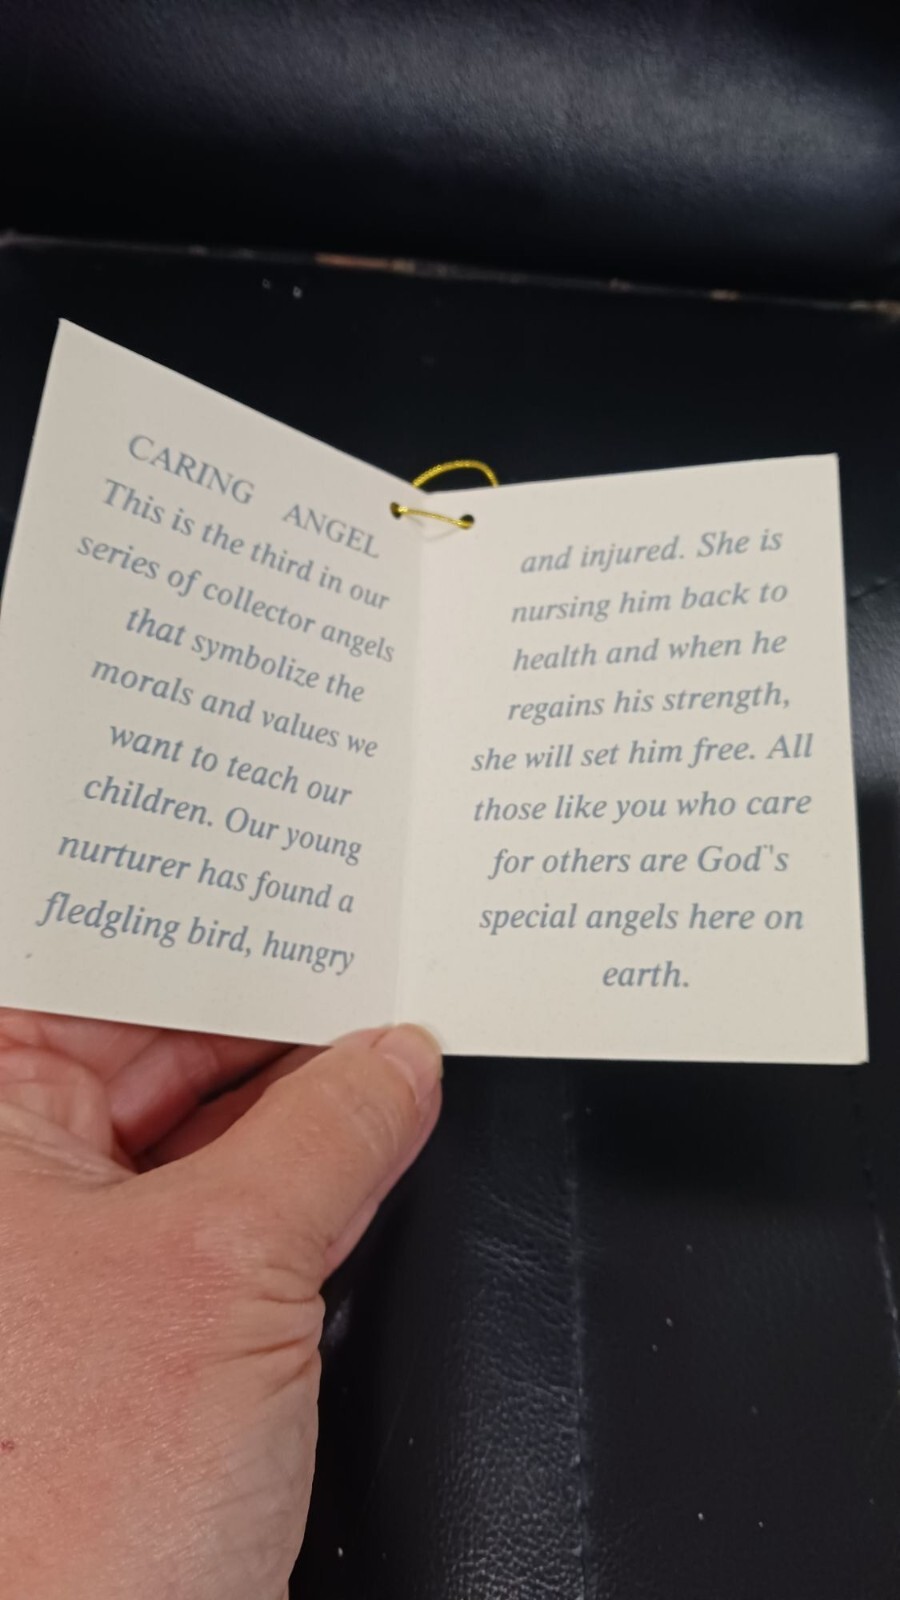 CARING ANGEL
This is the third in our
series of collector angels
that symbolize the
morals and values we
want to teach our
children. Our young
nurturer has found a
fledgling bird, hungry
and injured. She is
nursing him back to
health and when he
regains his strength,
she will set him free. All
those like you who care
for others are God"s
special angels here on
earth.